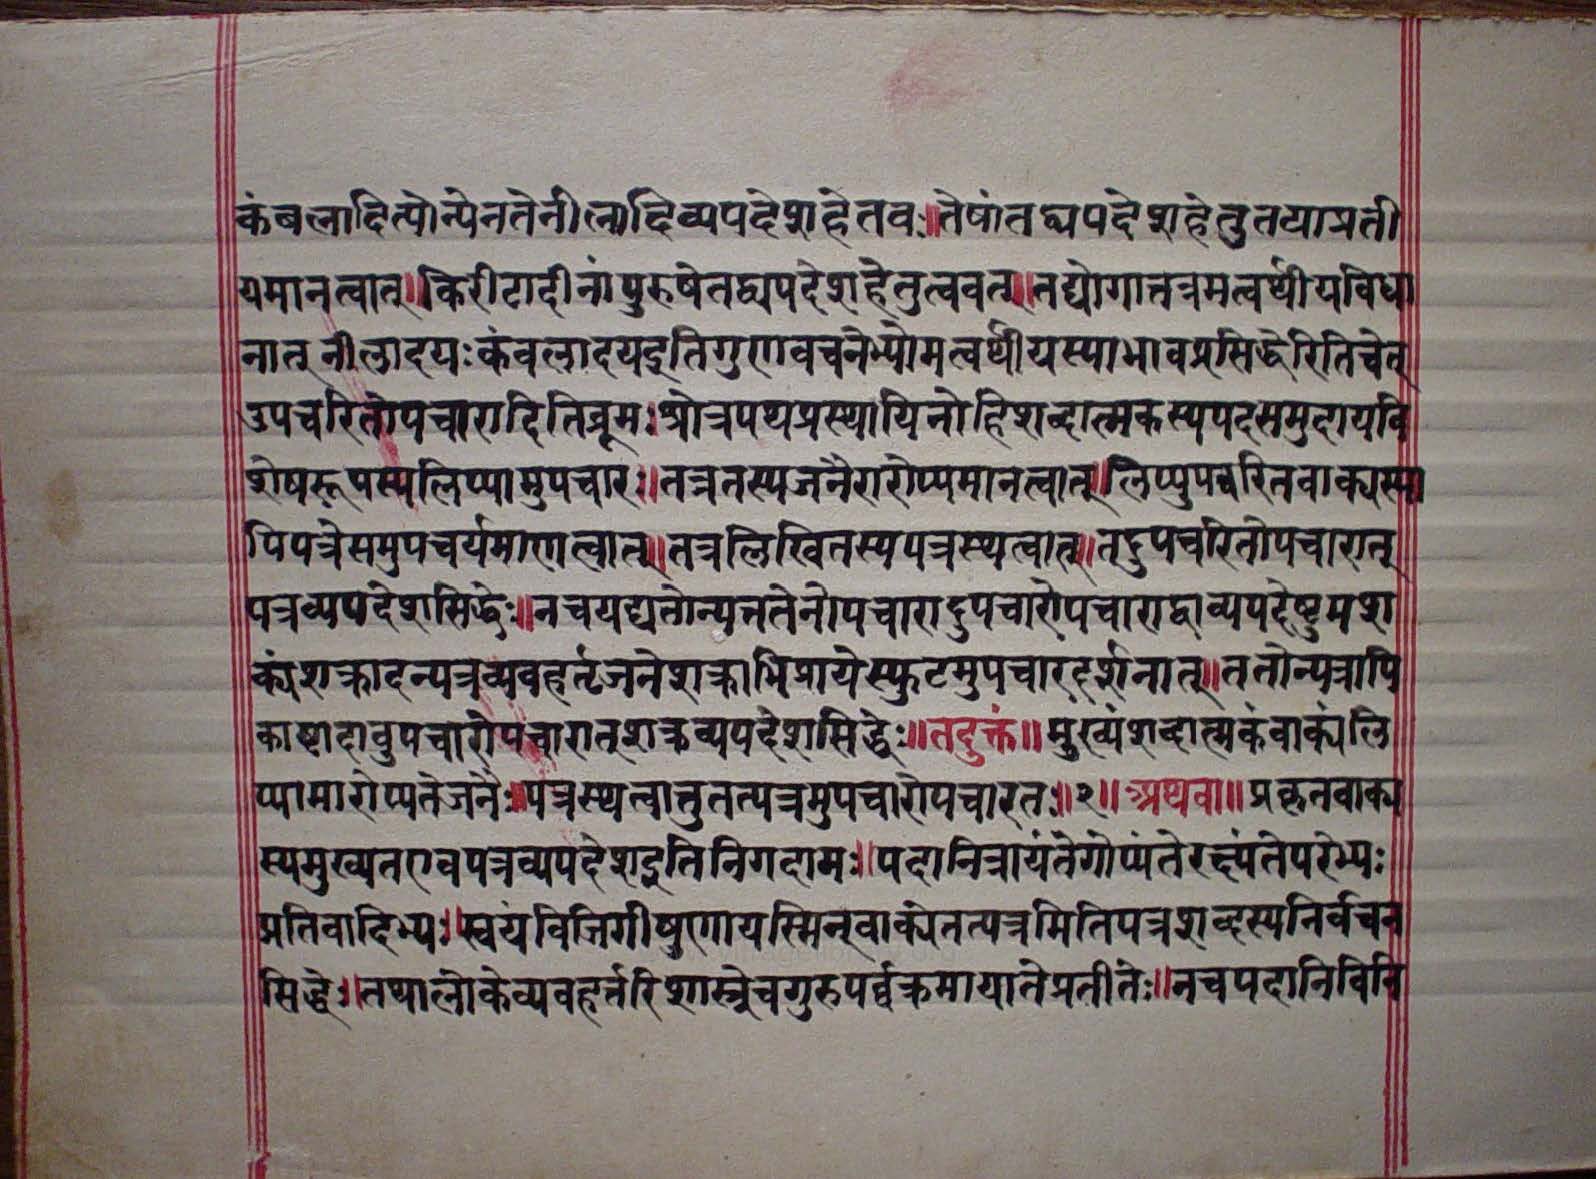 कंबलादित्योन्येनतेनीलादिव्यपदेशहेतवः॥तेषांतद्व्यपदेशहेतुतयाप्रती
यमानत्वात्॥किरीटादीनांपुरुषेतद्व्यपदेशहेतुत्ववत्॥तद्योगात्तत्रमत्वर्थीयविधा
नात् नीलादयःकंवलादयइतिगुणवचनेभ्योमत्वर्थीयस्याभावप्रसिद्धेरितिचेत्
उपचरितोपचारादितिब्रूमःश्रोत्रपथप्रस्थायिनोहिशब्दात्मकस्यपदसमुदायवि
शेषरूपस्यलिप्यामुपचारः॥तत्रतस्यजनैरारोप्यमानत्वात्॥लिप्युपचरितवाक्यस्या
पिपत्रेसमुपचर्यमाणत्वात्॥तत्रलिखितस्यपत्रस्थत्वात्॥तदुपचरितोपचारात्
पत्रव्यपदेशसिद्धेः॥नचयद्यतोन्यत्तत्तेनोपचारादुपचारोपचाराद्वाव्यपदेष्टुमश
क्यंशक्रादन्यत्रव्यवहर्तृजनेशक्राभिप्रायेस्फुटमुपचारदर्शनात्॥ततोन्यत्रापि
काष्टादावुपचारोपचारात्शक्रव्यपदेशसिद्धेः॥तदुक्तं॥मुख्यंशब्दात्मकंवाक्यंलि
प्यामारोप्यतेजनैः॥पत्रस्थत्वात्तुतत्पत्रमुपचारोपचारतः॥२॥अथवा॥प्रकृतवाक्य
स्यमुख्यतएवपत्रव्यपदेशइतिनिगदामः॥पदानित्रायंतेगोप्यंतेरक्ष्यंतेपरेभ्यः
प्रतिवादिभ्यः॥स्वयंविजिगीषुणायस्मिन्वाक्येतत्पत्रमितिपत्रशब्दस्यनिर्वचन
सिद्धेः॥तथालोकेव्यवहर्त्तरिशास्त्रेचगुरुपर्वक्रमायातेप्रतीतेः॥नचपदानिविनि